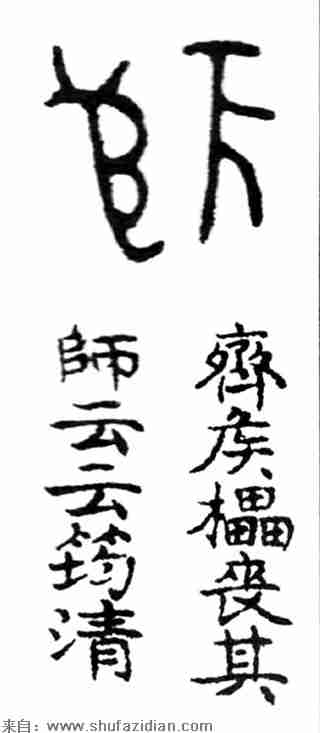 師
齊矦櫑喪其
師云云筠清
来自：www.shufazidian.com